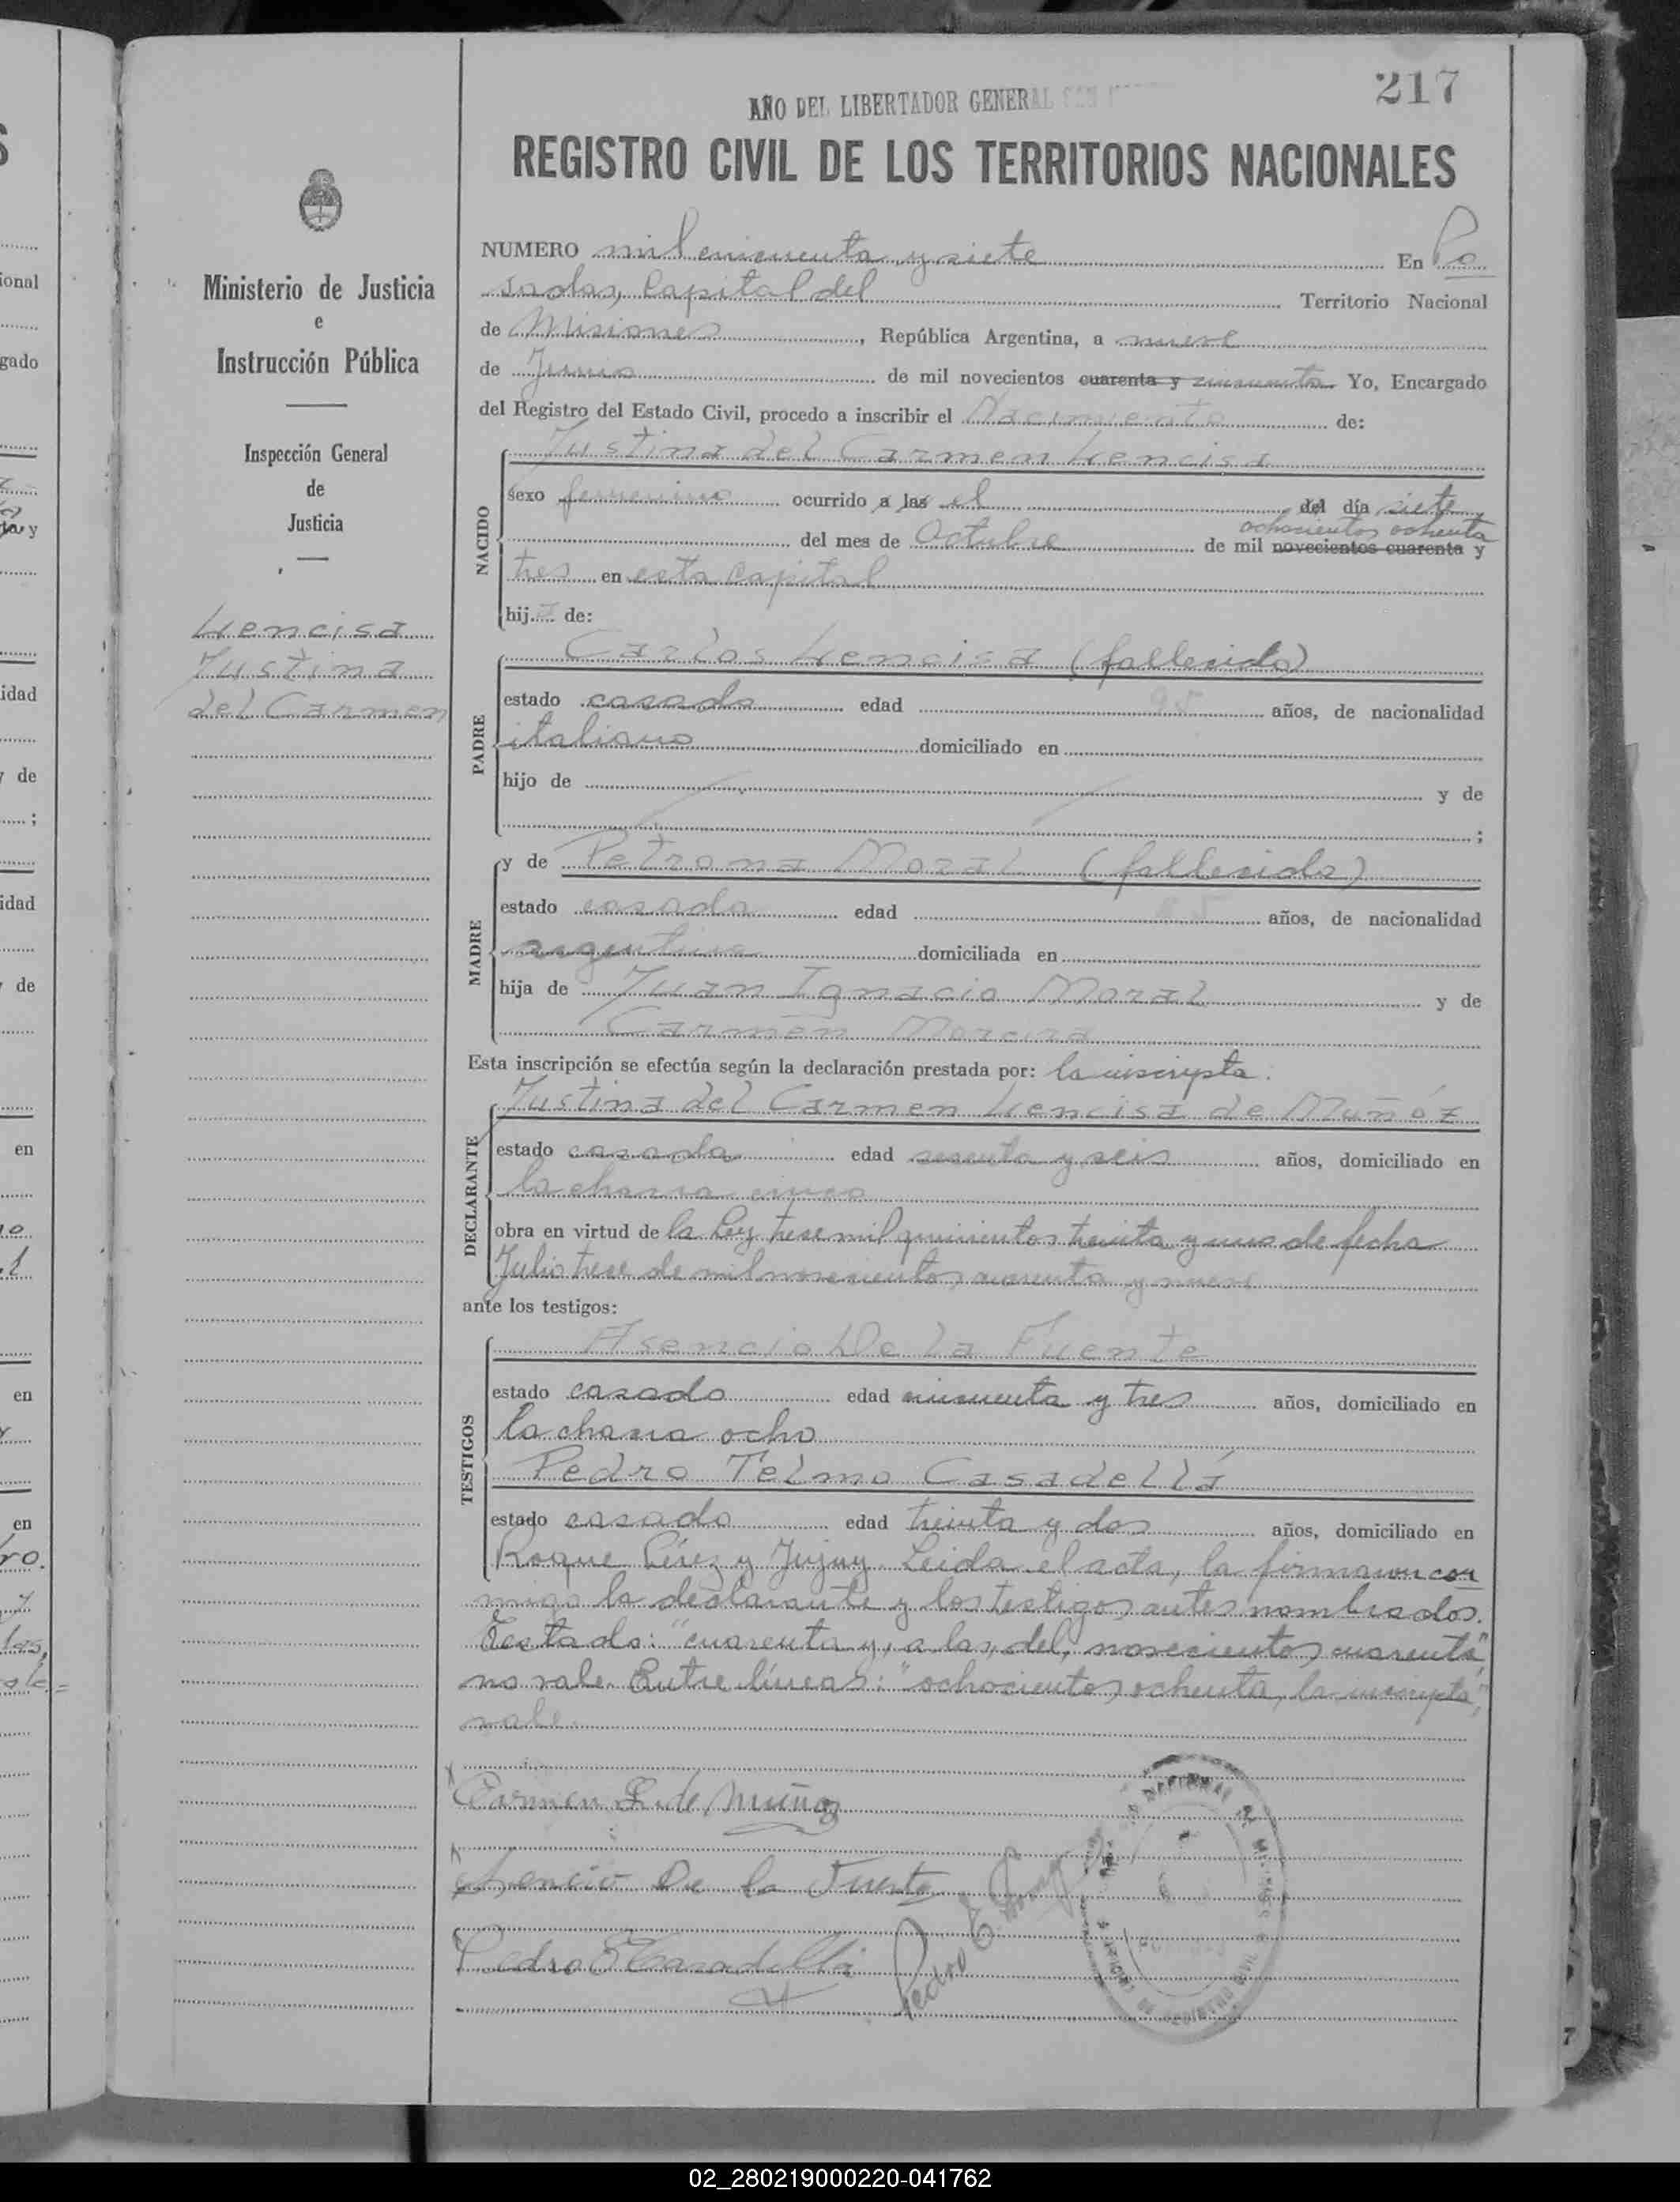 217
AÑO DEL LIBERTADOR GENERAL SAN
REGISTRO CIVIL DE LOS TERRITORIOS NACIONALES
Ministerio de Justicia
e
Instrucción Pública
Inspección General
de
Justicia
Lencisa
Justina
del Carmen
NUMERO mil cincuenta y siete En Po
sadas, Capital del Territorio Nacional
de Misiones, República Argentina, a nueve
de Junio de mil novecientos cuarenta y cincuenta Yo, Encargado
del Registro del Estado Civil, procedo a inscribir el Nacimiento de:
NACIDO
Justina del Carmen Lencisa
sexo femenino ocurrido a las el del día siete
ochocientos ochenta
del mes de Octubre de mil novecientos cuarenta y
tres en esta Capital
hija de:
PADRE
Carlos Lencisa (fallecido)
estado casado edad 95 años, de nacionalidad
italiano domiciliado en
hijo de y de
;
MADRE
y de Petrona Moral (fallecida)
estado casada edad años, de nacionalidad
argentina domiciliada en
hija de Juan Ignacio Moral y de
Carmen Moreira
Esta inscripción se efectúa según la declaración prestada por: la inscripta.
DECLARANTE
Justina del Carmen Lencisa de Muñóz
estado casada edad sesenta y seis años, domiciliado en
la chacra cinco
obra en virtud de la Ley trece mil quinientos treinta y uno de fecha
Julio trece de mil novecientos cuarenta y nueve
ante los testigos:
TESTIGOS
Asencio De la Fuente
estado casado edad cincuenta y tres años, domiciliado en
la chacra ocho
Pedro Telmo Casadellá
estado casado edad treinta y dos años, domiciliado en
Roque Pérez y Jujuy. Leida el acta, la firmaron con
migo la declarante y los testigos antes nombrados.
Testado: "cuarenta y, a las, del, novecientos cuarenta"
no vale. Entre líneas: "ochocientos ochenta, la inscripta",
vale.
Carmen L. de Muñoz
Asencio De la Fuente
Pedro T Casadella
Pedro E.
REGISTRO CIVIL
7
02_280219000220-041762